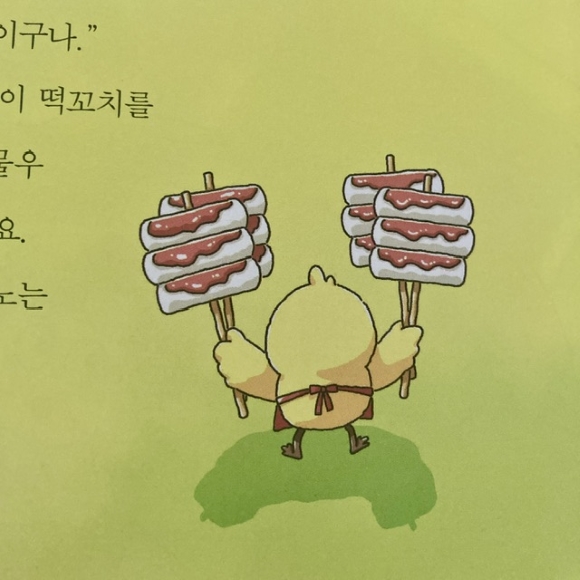 이구나.”
이 떡꼬치를
물우
요.
노는